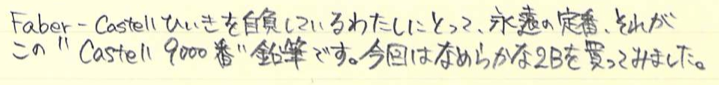 Faber-Castellひいきを自負しているわたしにとって、永遠の定番、それが
この"Castell 9000番"鉛筆です。今回はなめらかな2Bを買ってみました。